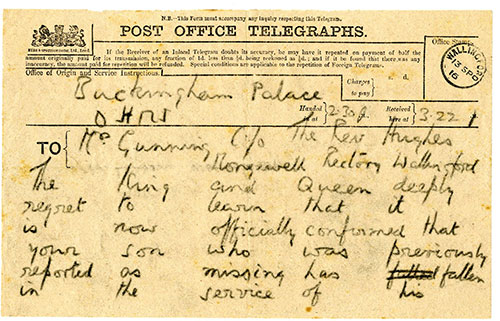 N.B.—This Form must accompany any inquiry respecting this Telegram.
POST OFFICE TELEGRAPHS.
If the Receiver of an Inland Telegram doubts its accuracy, he may have it repeated on payment of half the
amount originally paid for its transmission, any fraction of 1d. less than ½d. being reckoned as ½d.; and if it be found that there was any
inaccuracy, the amount paid for repetition will be refunded. Special conditions are applicable to the repetition of Foreign Telegrams.
Office Stamp.
WALLINGFORD
13 SP
16
Office of Origin and Service Instructions.
Charges
to pay
s. d.
Buckingham Palace
OHMS
Handed
in at
2.30
Received
here at
3.22
TO
Gunning c/o The Rev Hughes
Mongewell Rectory Wallingford
The King and Queen deeply
regret to learn that it
is now officially confirmed that
your son who was previously
reported as missing has fallen
in the service of his